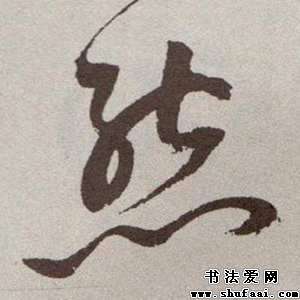 熊
书法爱网
www.shufaai.com